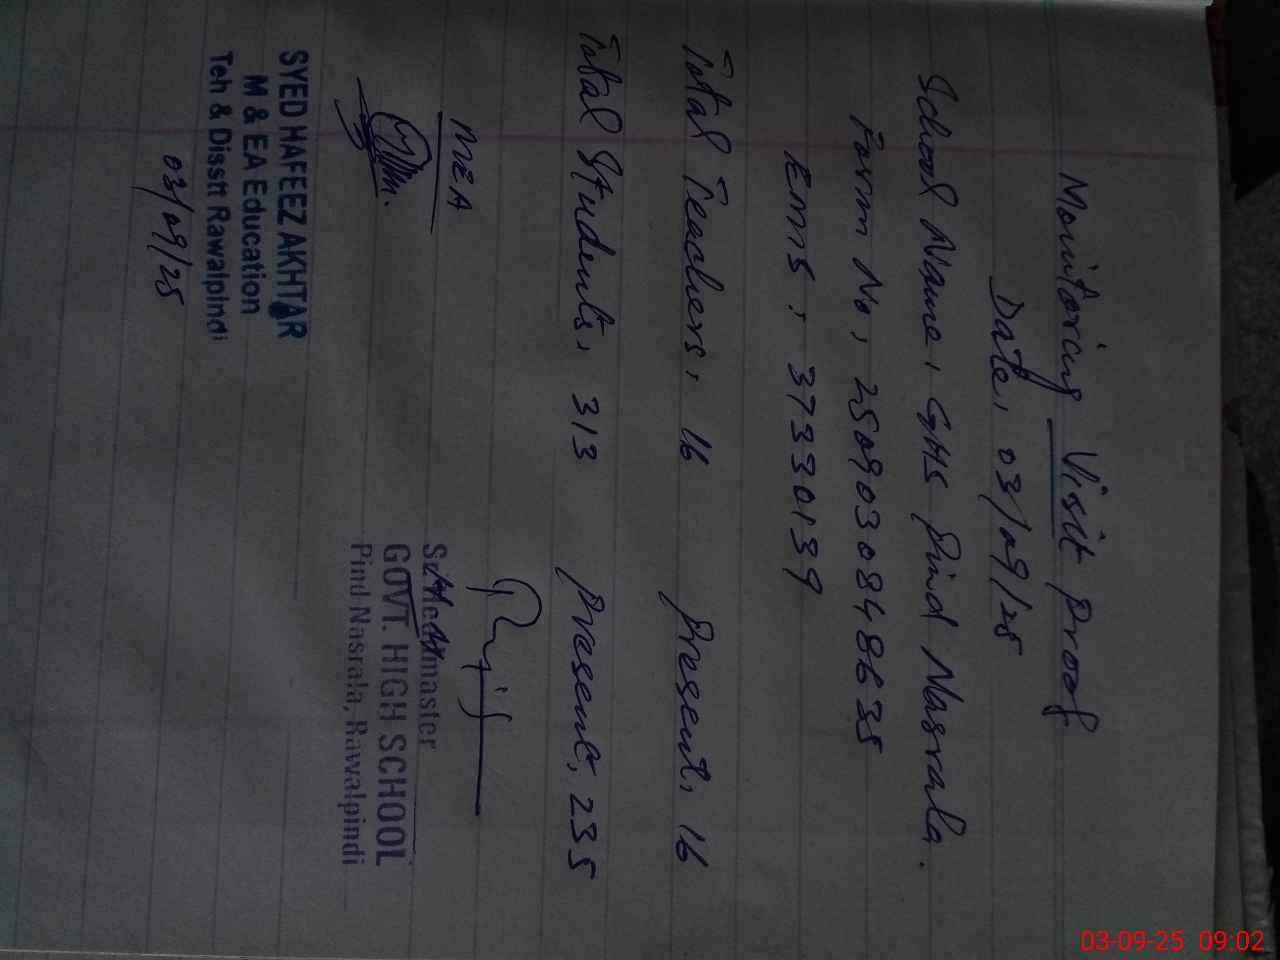 Monitoring Visit Proof
Date, 03/09/25
School Name, GHS Pind Nasrala.
Form No, 2509030848635
EMIS, 37330139
Total Teachers, 16 Present, 16
Total Students, 313 Present, 235
MEA
SYED HAFEEZ AKHTAR
M & EA Education
Teh & Disstt Rawalpindi
03/09/25
master
GOVT. HIGH SCHOOL
Pind Nasrala, Rawalpindi
03-09-25 09:02